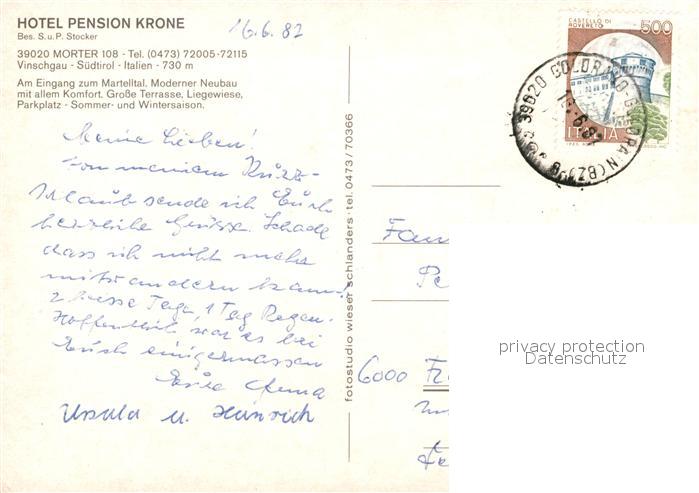 HOTEL PENSION KRONE
Bes. S. u. P. Stocker
39020 MORTER 108 - Tel. (0473) 72005-72115
Vinschgau - Südtirol - Italien - 730 m
Am Eingang zum Martelltal. Moderner Neubau
mit allem Komfort. Große Terrasse, Liegewiese,
Parkplatz - Sommer- und Wintersaison.
16.6.82
Meine Lieben!
Von meinem Kurz-
Urlaub sende ich Euch
herzliche Grüsse. Schade
dass ich nicht mehr
mitwandern kann.
2 heisse Tage, 1 Tag Regen.
Hoffentlich war es bei
Euch einigermassen
Eure
Ursula u. Heinrich
fotostudio wieser schlanders · tel. 0473 / 70366
CASTELLO DI
ROVERETO
500
ITALIA
39020 GOLDRAIN (BZ)
Fam
6000 Fr
privacy protection
Datenschutz